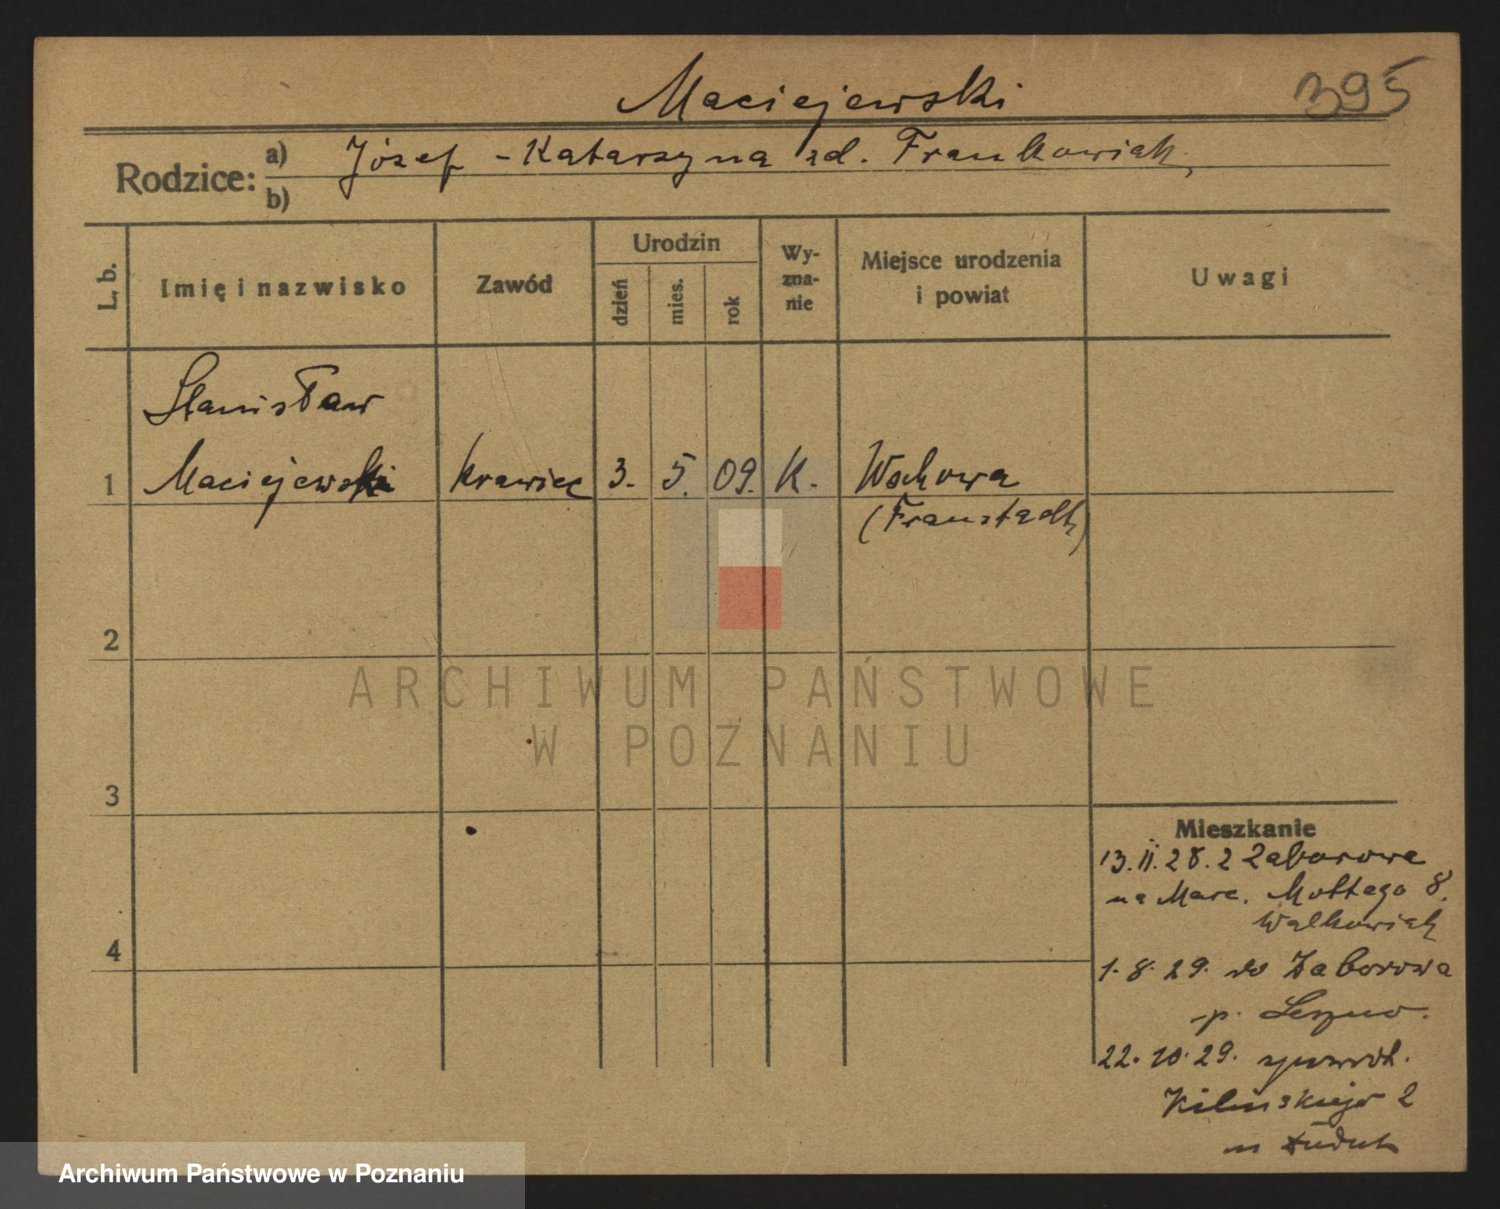 Maciejewski
395
Rodzice:
a) Józef - Katarzyna zd. Frankowiak
b)
L. b.
Imię i nazwisko
Zawód
Urodzin
dzień
mies.
rok
Wy-
zna-
nie
Miejsce urodzenia
i powiat
Uwagi
Stanisław
1 Maciejewski krawiec 3. 5. 09. K. Wschowa
(Fraustadt)
2
ARCHIWUM PAŃSTWOWE
W POZNANIU
3
Mieszkanie
13.II.28. z Zaborowa
na Marc. Mottego 8.
Walkowiak
4
1.8.29. do Zaborowa
p. Leszno.
22.10.29. spowrot.
Kilińskiego 2
Archiwum Państwowe w Poznaniu